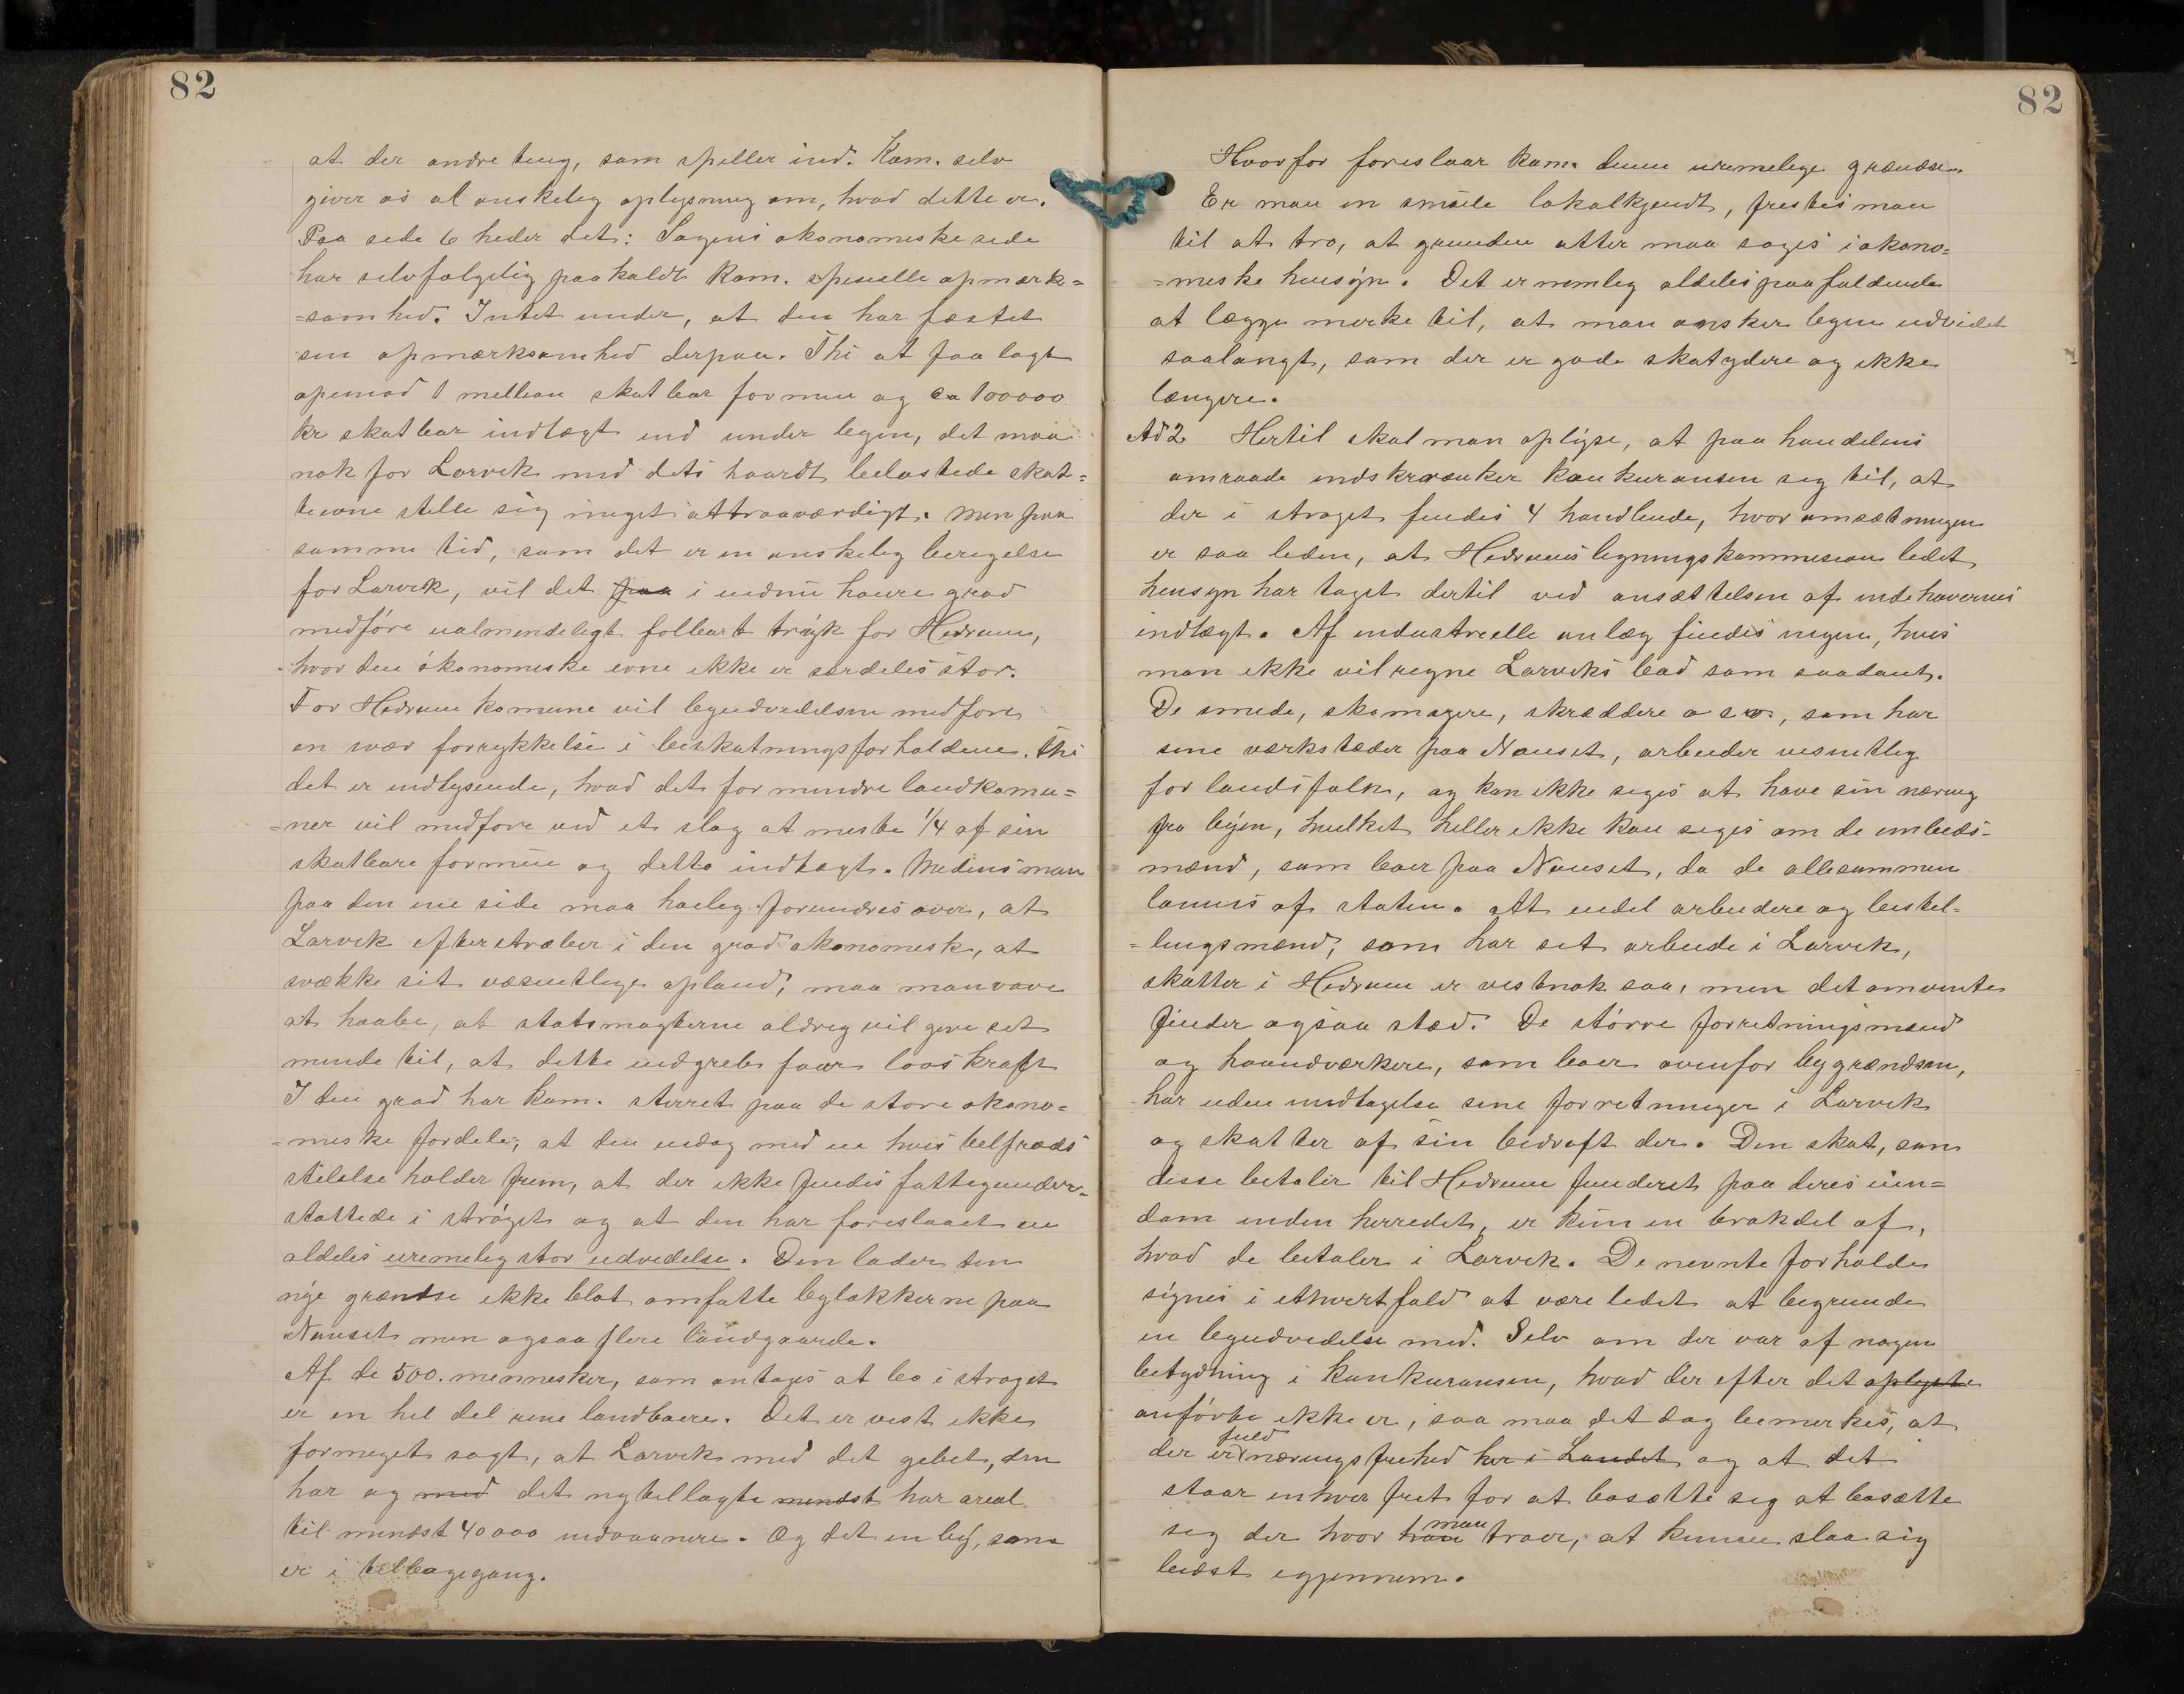 82
at der andre ting, som spiller ind. Kom. selv
giver os al ønskelig oplysning om, hvad dette er.
Paa side 6 heder det: Sagens økonomiske side
har selvfølgelig paakaldt Kom. specielle opmærk=
=somhed. Intet under, at den har fæstet
sin opmærksomhed derpaa. Thi at faa lagt
openmod 1 million skatbar formue og ca 100000
kr skatbar indtægt ind under byen, det maa
nok for Larvik med dets haardt belastede skat=
teevne stille sig meget attraaværdigt. Men paa
samme tid, som det er en ønskelig berigelse
for Larvik, vil det paa i endnu høiere grad
medføre ualmindeligt følbart tryk for Hedrum,
hvor den økonomiske evne ikke er særdeles stor.
For Hedrum komune vil byudvidelsen medføre
en svær forrykkelse i beskatningsforholdene. Thi
det er indlysende, hvad det for mindre landkomu=
=ner vil medføre ved et slag at miste 1/4 af sin
skatbare formue og ditto indtægt. Medens man
paa den ene side maa høilig forundres over, at
Larvik efterstræber i den grad økonomisk, at
svække sit væsentlige opland, maa man vove
at haabe, at statsmagterne aldrig vil give sit
minde til, at dette indgreb faar lovs kraft
I den grad har kom. stirret paa de store økono=
=miske fordele, at den endog med en hvis tilfreds
stilelse holder frem, at der ikke findes fattigunder=
støttede i strøget og at den har foreslaaet en
aldeles urimelig stor udvidelse. Den lader den
nye grændse ikke blot omfatte byløkkerne paa
Nanset men ogsaa flere landgaarde.
Af de 500. mennesker, som antages at bo i strøget
er en hel del rene landboere. Det er vist ikke
formeget sagt, at Larvik med det gebet, den
har og med det nytillagte mindst har areal
til mindst 40000 indvaanere. Og det en by, som
er i tilbagegang.
82
Hvorfor foreslaar kom. denne urimelige grændse.
Er man en smule lokalkjendt, fristes man
til at tro, at grunden atter maa søges i økono=
=miske hensyn. Det er nemlig aldeles paafaldende
at lægge merke til, at man ønsker byen udvidet
saalangt, som der er gode skatydere og ikke
længere.
Ad 2 Hertil skal man oplyse, at paa handelens
omraade indskrænker konkuransen sig til, at
der i strøget findes 4 handlende, hvor omsætningen
er saa liden, at Hedrums ligningskommision lidet
hensyn har taget dertil ved ansættelsen af indehavernes
indtægt. Af industrielle anlæg findes ingen, hvis
man ikke vil regne Larviks bad som saadant.
De smede, skomagere, skræddere o s v., som har
sine værksteder paa Nanset, arbeider vesentlig
for landsfolk, og kan ikke siges at have sin næring
fra byen, hvilket heller ikke kan siges om de embeds-
mænd, som boer paa Nanset, da de allesammen
lønnes af staten. Att endel arbeidere og bestil-
=lingsmænd, som har sit arbeide i Larvik,
skatter i Hedrum er vistnok saa, men det omvendte
finder ogsaa sted. De større forretningsmænd
og haandværkere, som boer ovenfor bygrændsen,
har uden undtagelse sine forretninger i Larvik
og skatter af sin bedrift der. Den skat, som
disse betaler til Hedrum funderet paa deres eien=
dom inden herredet, er kun en brøkdel af,
hvad de betaler i Larvik. De nevnte forholde
synes i ethvertfald at være lidet at begrunde
en byudvidelse med. Selv om der var af nogen
betydning i konkuransen, hvad der efter det oplyste
anførte ikke er, saa maa det dog bemerkes, at
der er fuld næringsfrihed her i Landet og at det
staar enhver frit for at bosætte sig at bosætte
sig der hvor han man troer, at kunne slaa sig
bedst igjennem.